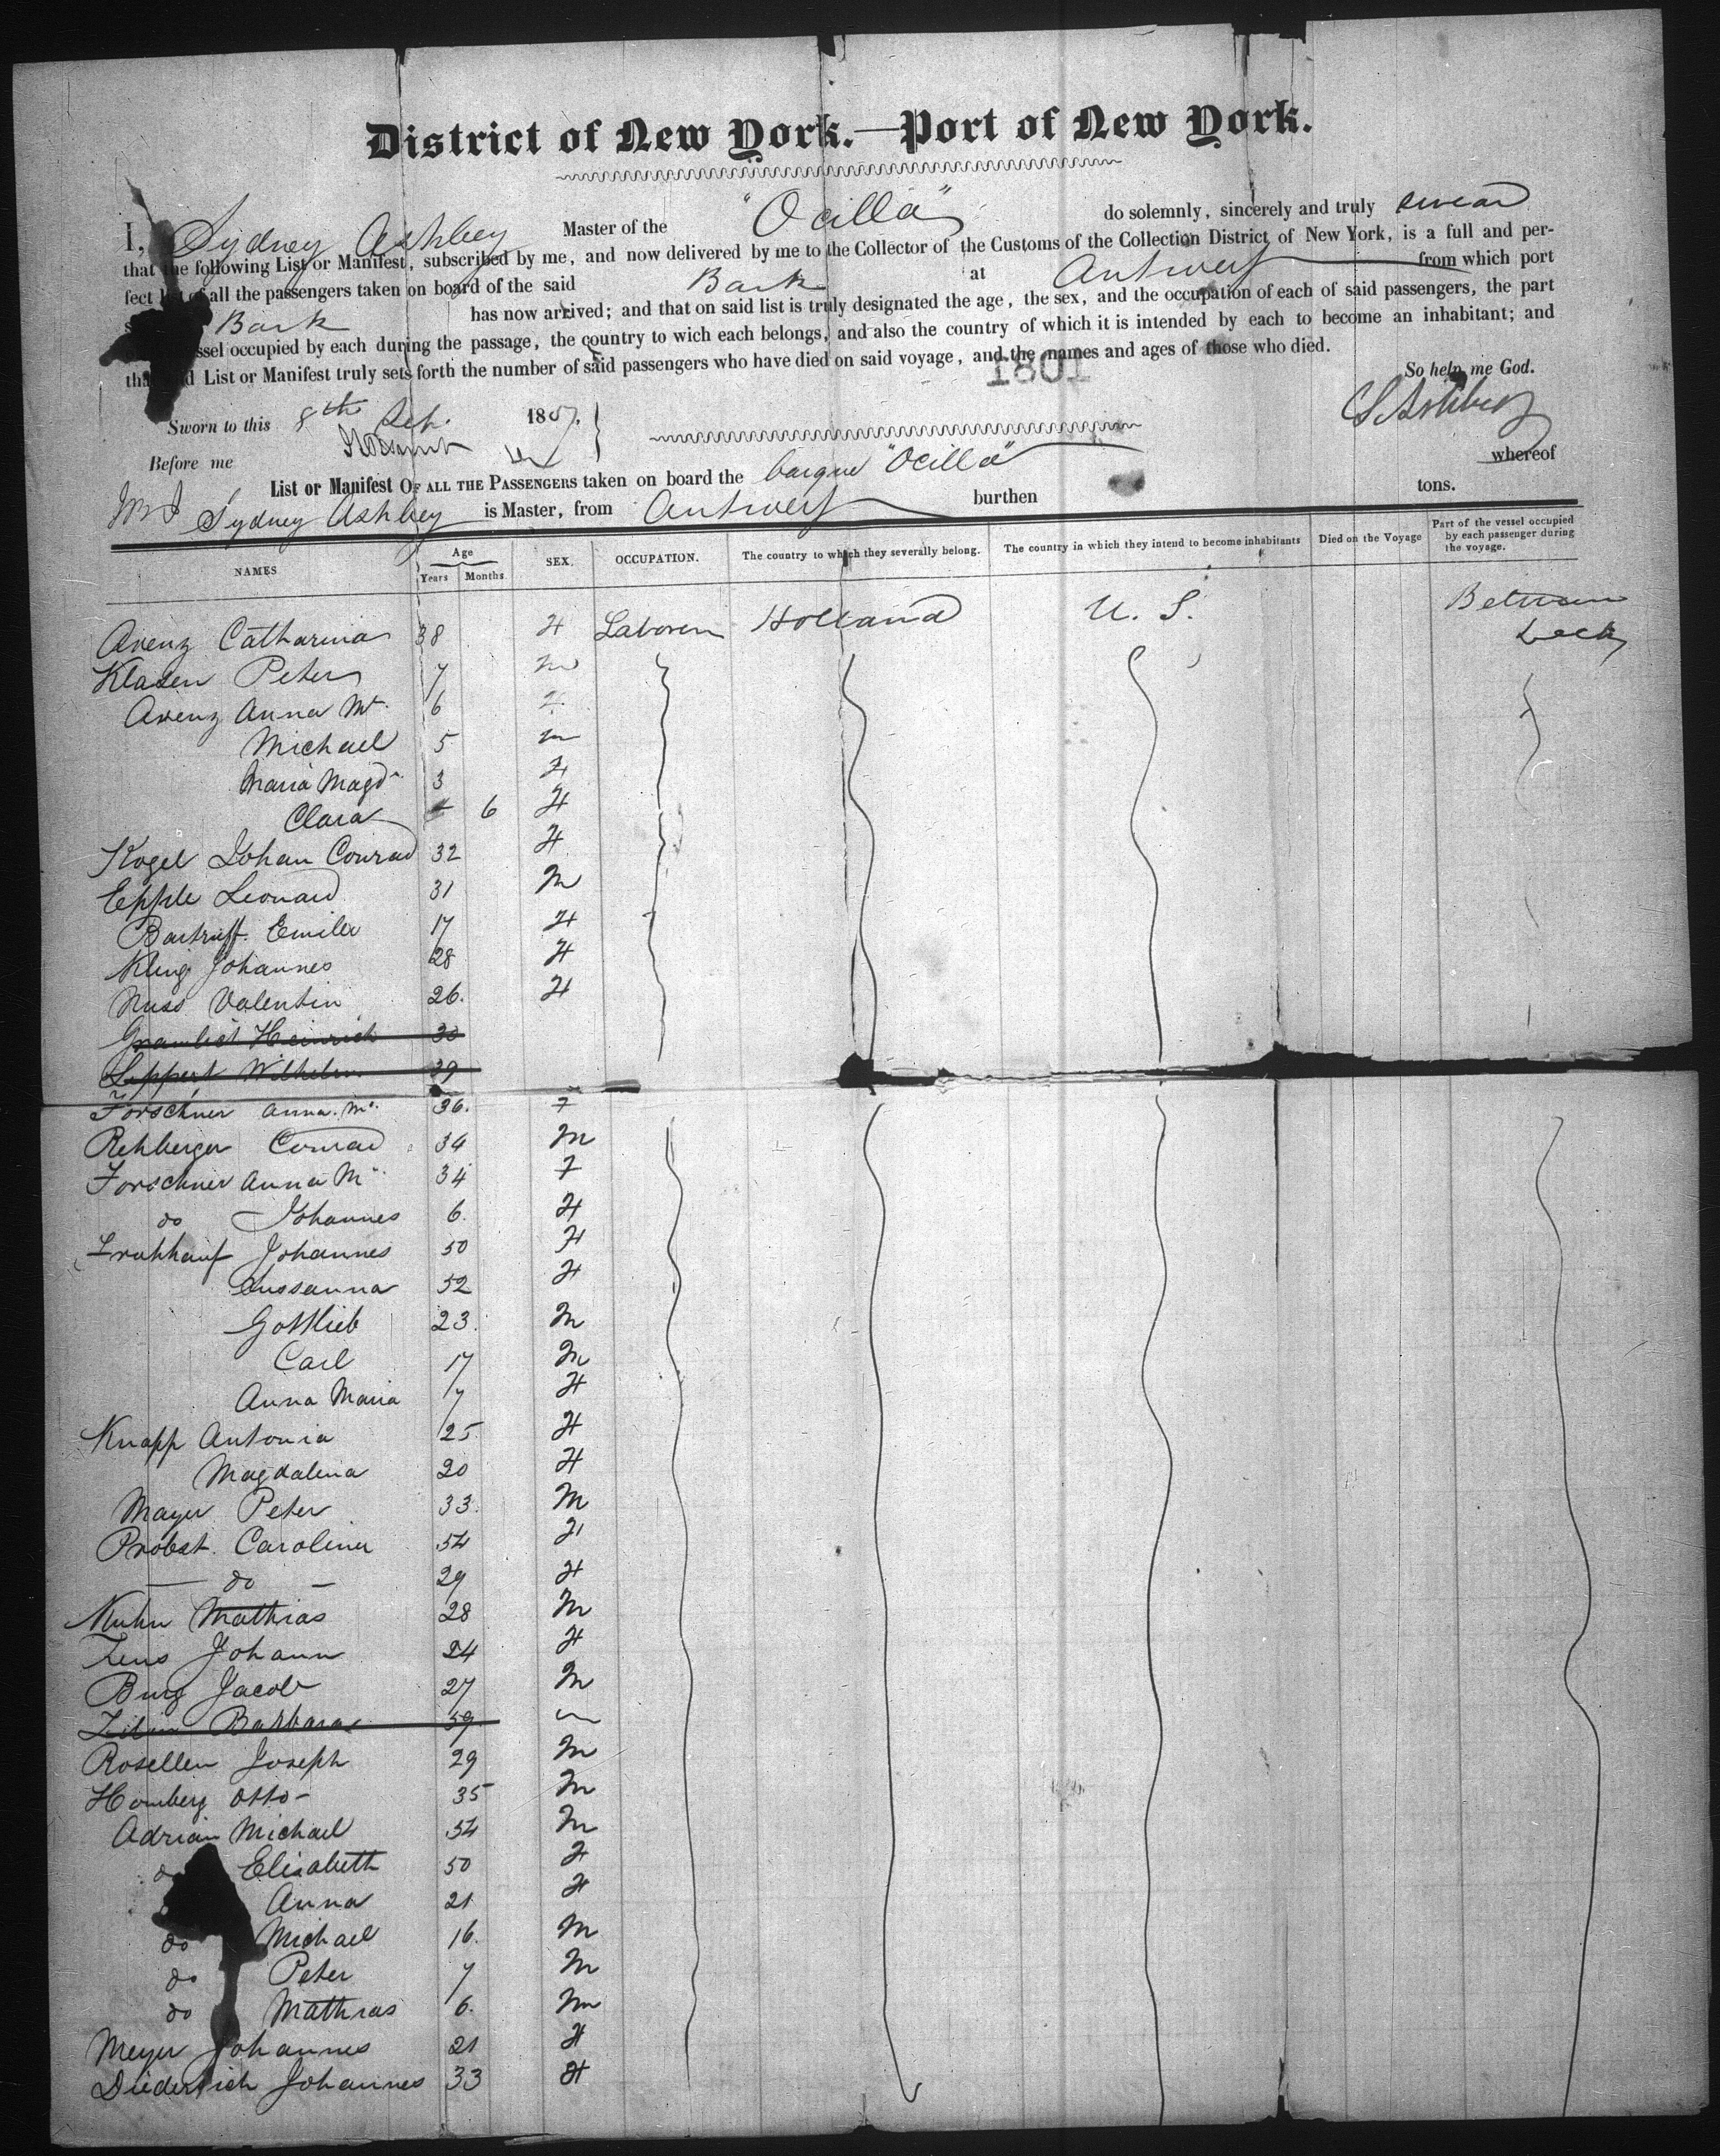 District of New York.—Port of New York.
I, Sydney Ashbey Master of the "Ocilla" do solemnly, sincerely and truly swear
that the following List or Manifest, subscribed by me, and now delivered by me to the Collector of the Customs of the Collection District of New York, is a full and per-
fect list of all the passengers taken on board of the said Bark at Antwerp from which port
Bark has now arrived; and that on said list is truly designated the age, the sex, and the occupation of each of said passengers, the part
ssel occupied by each during the passage, the country to wich each belongs, and also the country of which it is intended by each to become an inhabitant; and
tha d List or Manifest truly sets forth the number of said passengers who have died on said voyage, and the names and ages of those who died.
1801
So help me God.
Sworn to this 8th Sep. 1857.
S Ashbey
Before me
List or Manifest OF ALL THE PASSENGERS taken on board the barque "Ocilla" whereof
Sydney Ashbey is Master, from Antwerp burthen tons.
NAMES Age Years Months SEX. OCCUPATION. The country to which they severally belong. The country in which they intend to become inhabitants Died on the Voyage Part of the vessel occupied by each passenger during the voyage.
Arenz Catharina 38 F Laborer Holland U. S. Between Deck
Klasen Peter 7 M
Arenz Anna Ma. 6 F
Michael 5 M
Maria Magd. 3 F
Clara 6 F
Kogel Johan Conrad 32 F
Epple Leonard 31 M
Bartruff Emilie 17 F
Kling Johannes 28 F
Nuss Valentin 26. F
Heinrich 30
Leppert Wilhelm 39
Forschner Anna Ma. 36. F
Rehberger Conrad 34 M
Forschner Anna M 34 F
do Johannes 6. F
Johannes 50 F
Sussanna 52 F
Gottlieb 23. M
Carl 17 M
Anna Maria 7 F
Knapp Antonia 25 F
Magdalena 20 F
Mayer Peter 33. M
Probst Carolina 54 F
— do — 29 F
Kuhn Mathias 28 M
Johann 24 F
Burg Jacob 27 M
Barbara 59
Rosellen Joseph 29 M
Homberg Otto 35 M
Adrian Michael 54 M
do Elisabeth 50 F
Anna 21 F
do Michael 16. M
do Peter 7 M
do Mathias 6. M
Meyer Johannes 21 F
Diederich Johannes 33 F